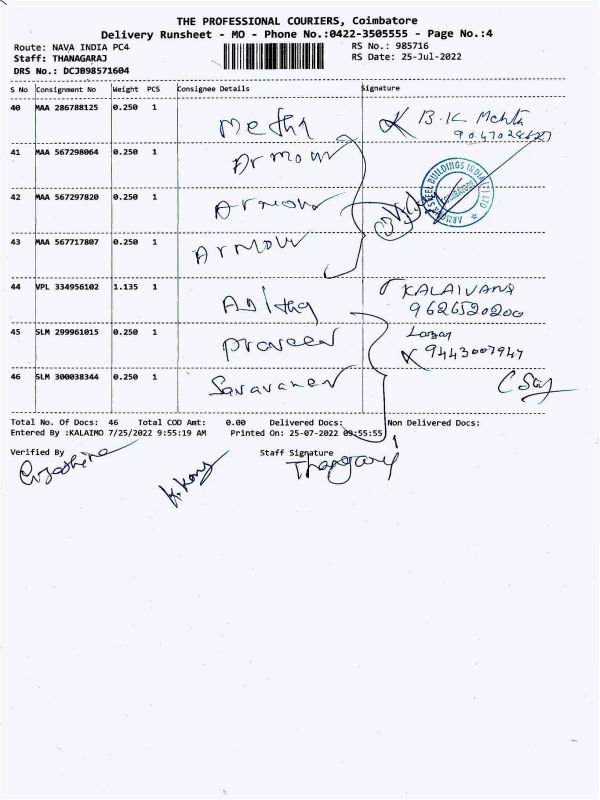 THE PROFESSIONAL COURIERS, Coimbatore
Delivery Runsheet - MO - Phone No.:0422-3505555 - Page No.:4
Route: NAVA INDIA PC4
RS No.: 985716
Staff: THANAGARAJ
RS Date: 25-Jul-2022
DRS No.: DCJB98571604
S No Consignment No Weight PCS Consignee Details Signature
40 MAA 286788125 0.250 1 Metha B.K Mehta
41 MAA 567298064 0.250 1 Armour
42 MAA 567297820 0.250 1 Armour
STEEL BUILDINGS INDIA (P) LTD
Coimbatore
43 MAA 567717807 0.250 1 Armour
44 VPL 334956102 1.135 1 KALAIVANI
9626520200
45 SLM 299961015 0.250 1 Praveen
9443007947
46 SLM 300038344 0.250 1 Saravanan
Total No. Of Docs: 46 Total COD Amt: 0.00 Delivered Docs: Non Delivered Docs:
Entered By :KALAIMO 7/25/2022 9:55:19 AM Printed On: 25-07-2022 09:55:55
Verified By Staff Signature
Thangaraj